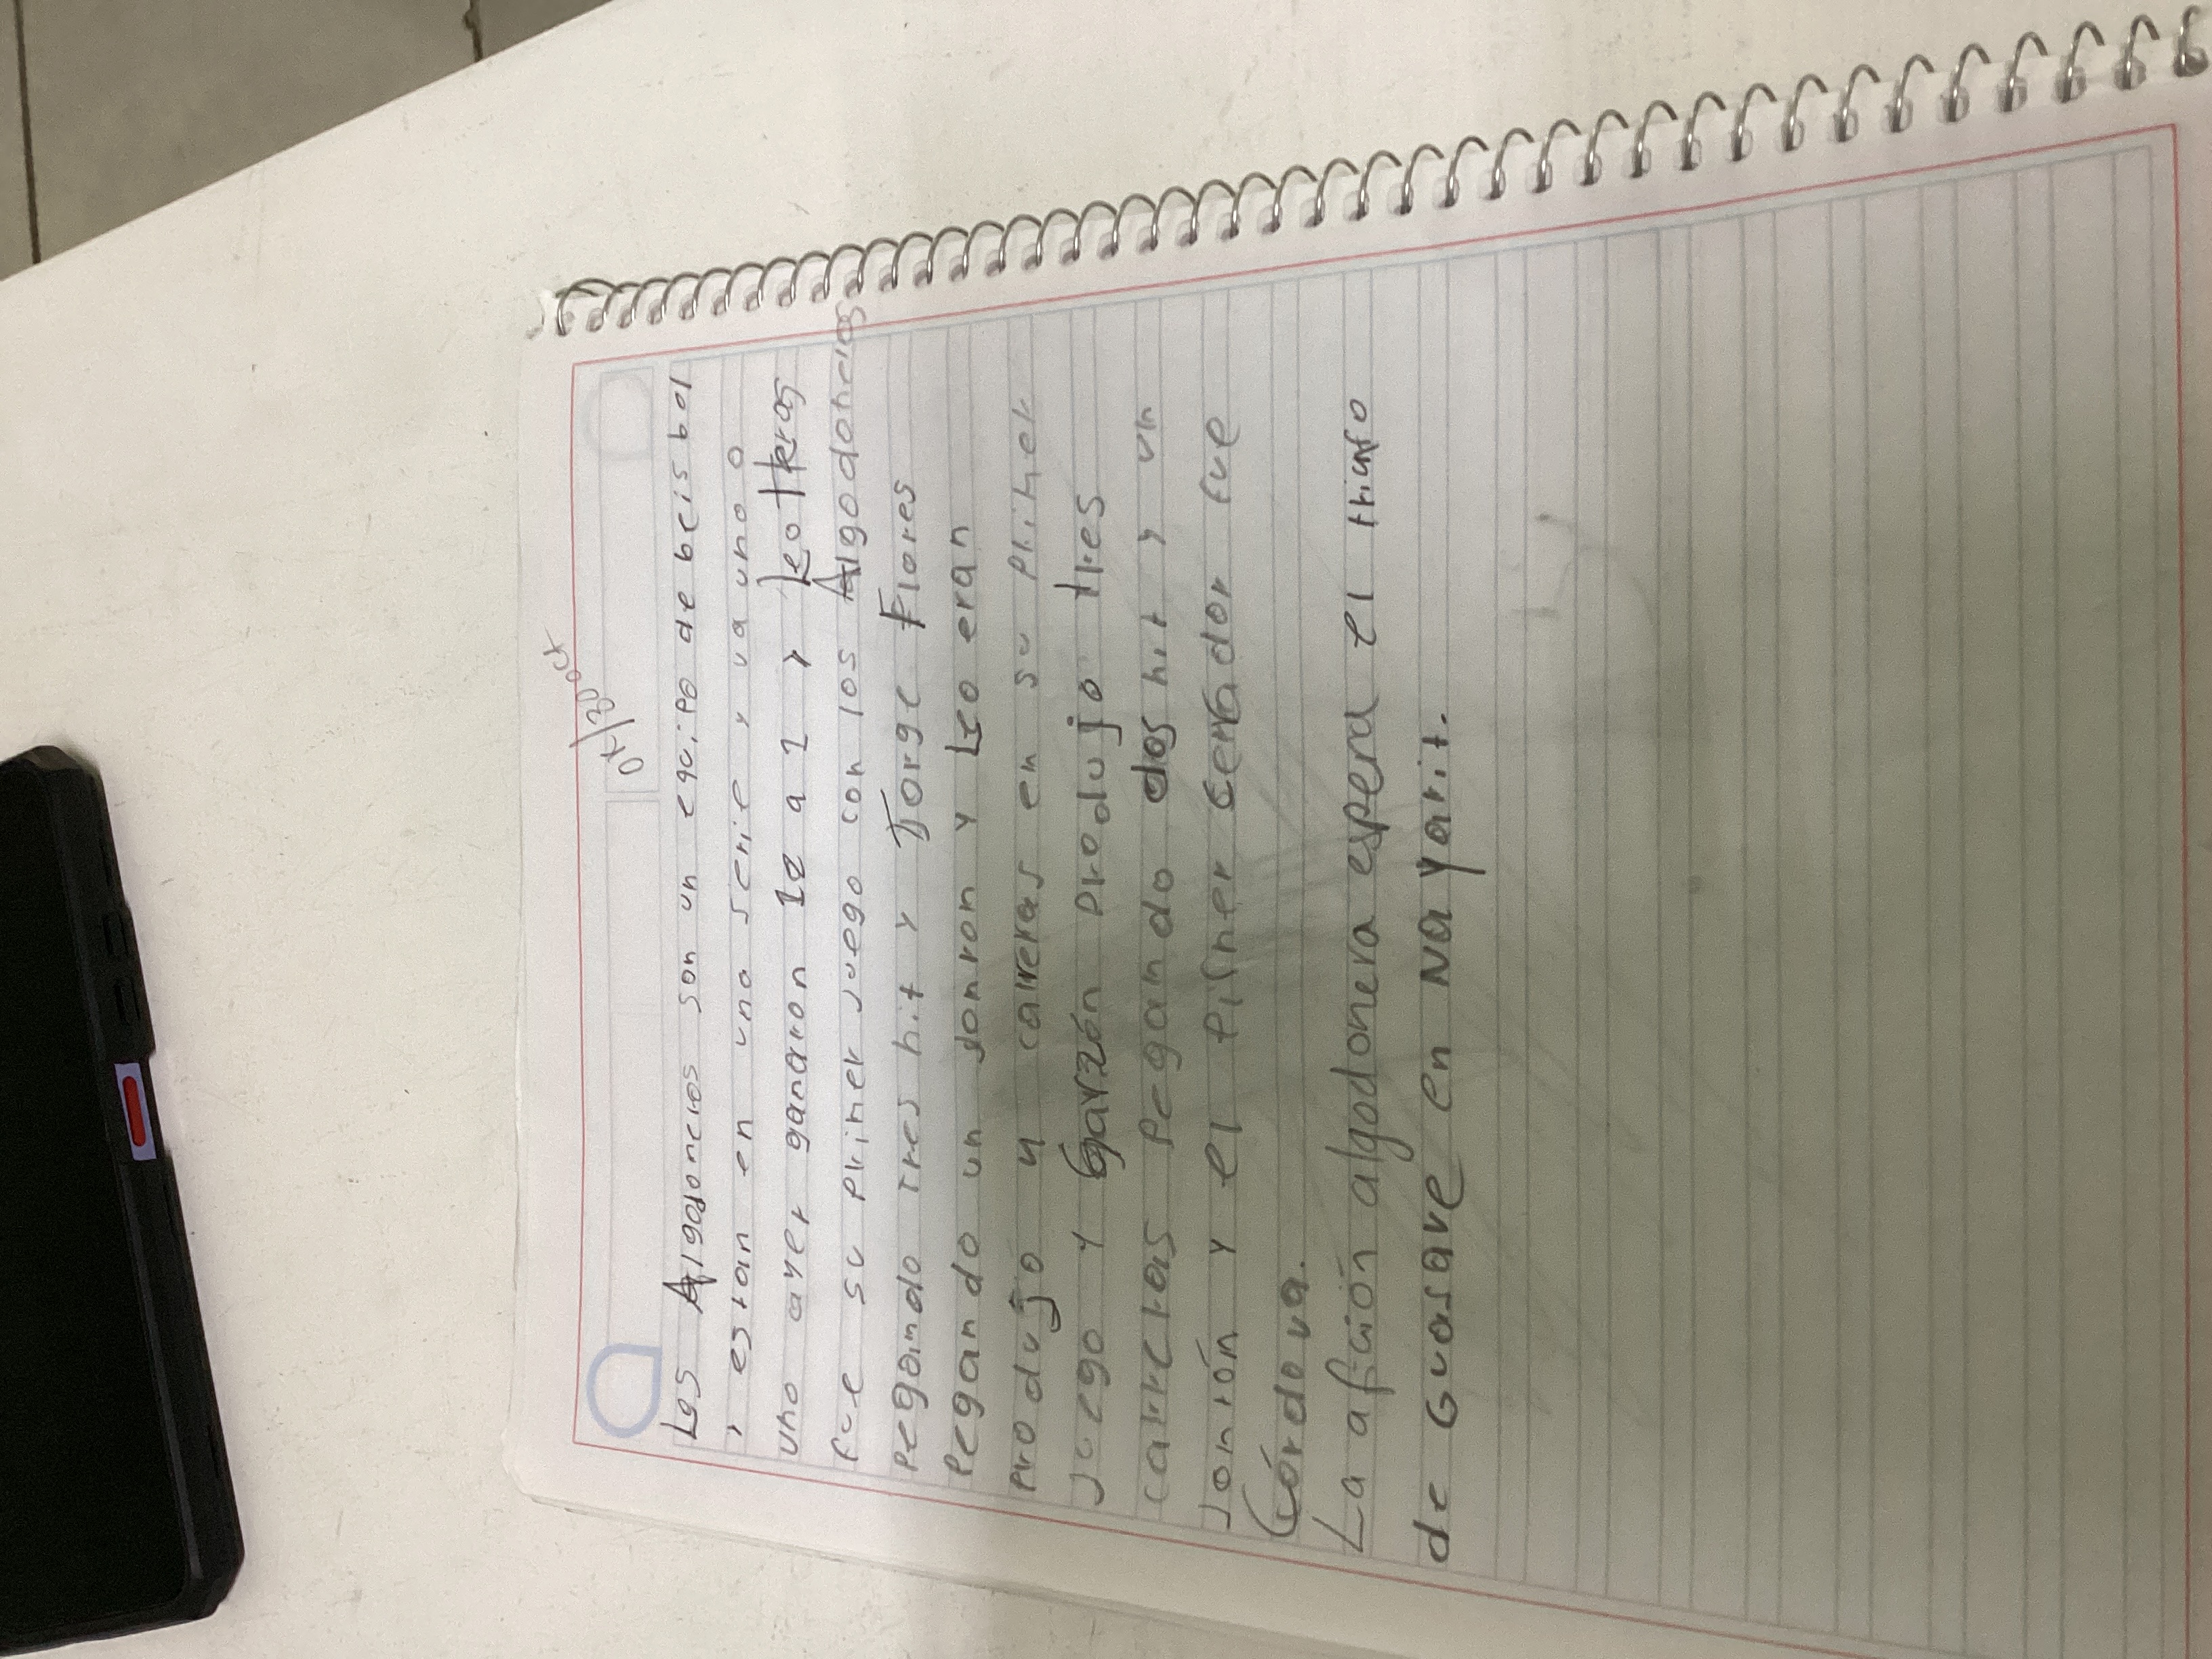 Los Algodoneros son un equipo de beisbol
, estan en una serie y va uno a
uno ayer ganaron 12 a 1 y
fue su primer juego con los Algodoneros
Pegando tres hit y Jorge Flores
Pegando un jonron y Leo eran
Produjo 4 carreras en su primer
juego y Garzón Produjo tres
carreras Pegando dos hit y un
jonrón y el cerrador fue
Córdova.
La afición algodonera espera el triunfo
de Guasave en Nayarit.